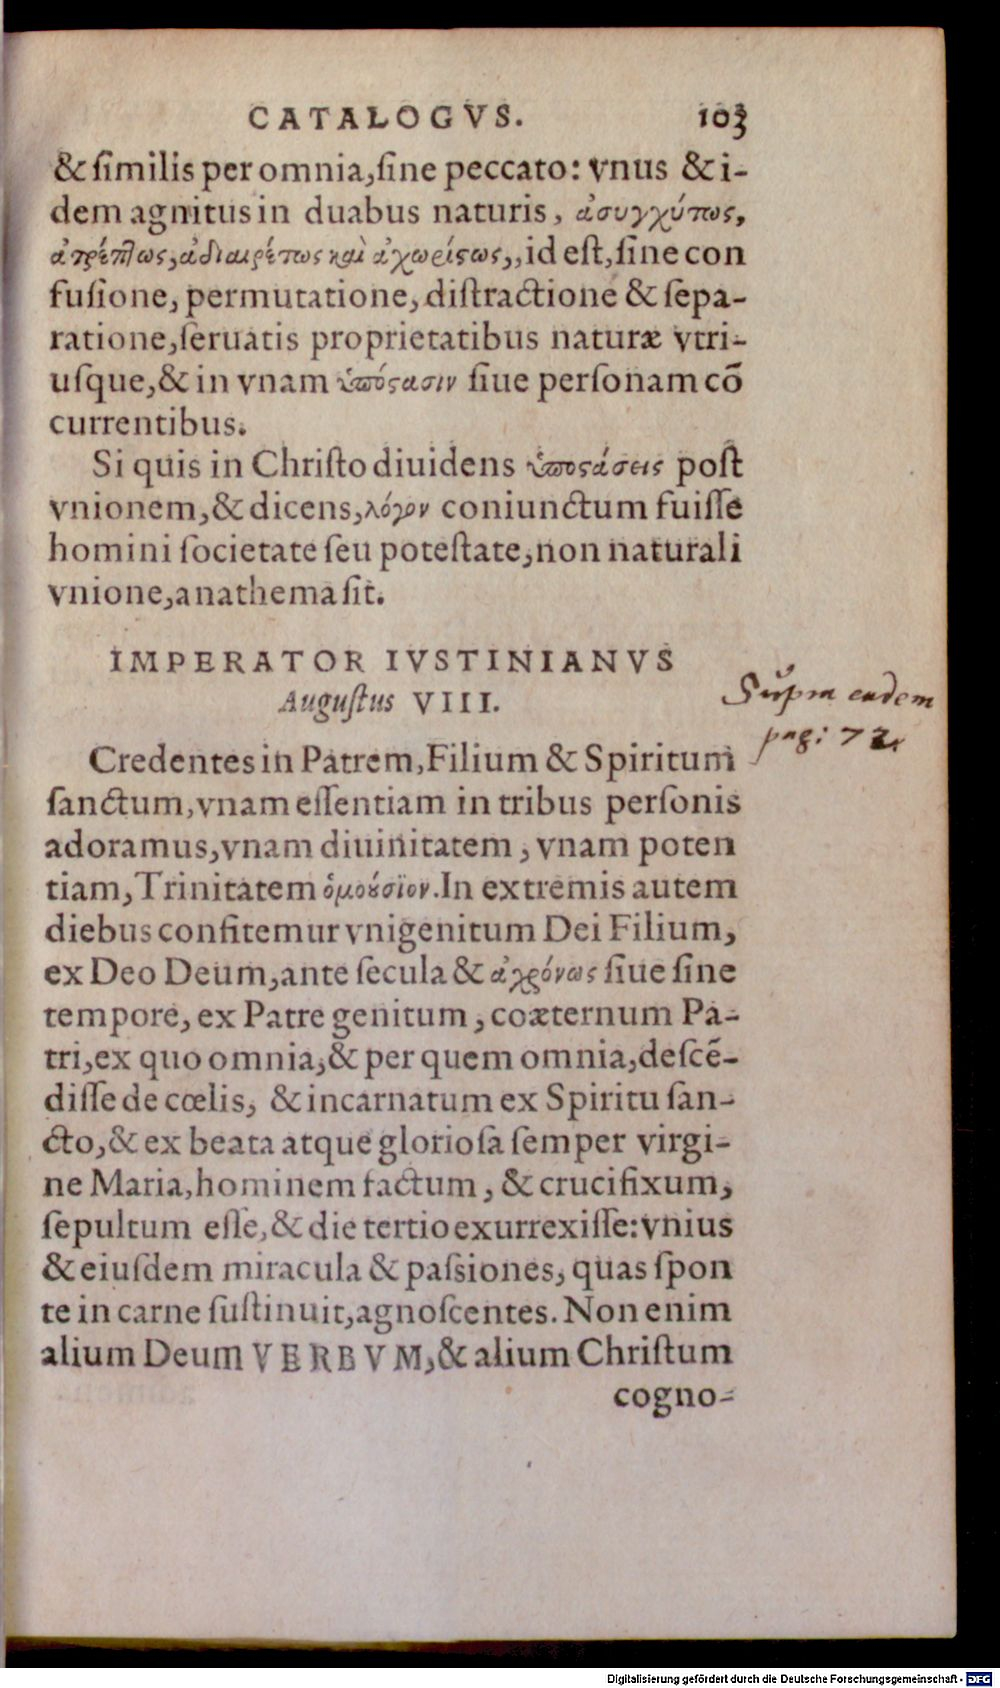 CATALOGVS. 103
& ſimilis per omnia, ſine peccato: vnus & i-
dem agnitus in duabus naturis, ἀσυγχύτως,
ἀτρέπτως, ἀδιαιρέτως καὶ ἀχωρίϛως,, id eſt, ſine con
fuſione, permutatione, diſtractione & ſepa-
ratione, ſeruatis proprietatibus naturæ vtri-
uſque, & in vnam ὑπόϛασιν ſiue perſonam cō
currentibus.
Si quis in Chriſto diuidens ὑποϛάσεις poſt
vnionem, & dicens, λόγον coniunctum fuiſſe
homini ſocietate ſeu poteſtate, non naturali
vnione, anathema ſit.
IMPERATOR IVSTINIANVS
Auguſtus VIII.
Supra eadem
pag: 72.
Credentes in Patrem, Filium & Spiritum
ſanctum, vnam eſſentiam in tribus perſonis
adoramus, vnam diuinitatem, vnam poten
tiam, Trinitatem ὁμοȣ́σϊον. In extremis autem
diebus confitemur vnigenitum Dei Filium,
ex Deo Deum, ante ſecula & ἀχρόνως ſiue ſine
tempore, ex Patre genitum, coæternum Pa-
tri, ex quo omnia, & per quem omnia, deſcē-
diſſe de cœlis, & incarnatum ex Spiritu ſan-
cto, & ex beata atque glorioſa ſemper virgi-
ne Maria, hominem factum, & crucifixum,
ſepultum eſſe, & die tertio exurrexiſſe: vnius
& eiuſdem miracula & paſsiones, quas ſpon
te in carne ſuſtinuit, agnoſcentes. Non enim
alium Deum VERBVM, & alium Chriſtum
cogno-
Digitalisierung gefördert durch die Deutsche Forschungsgemeinschaft - DFG